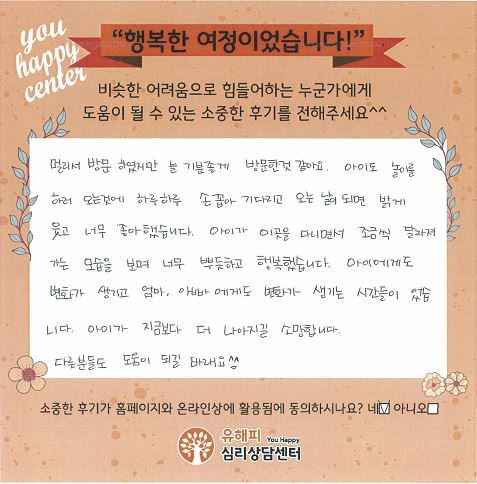 you
happy
center
“행복한 여정이었습니다!”
비슷한 어려움으로 힘들어하는 누군가에게
도움이 될 수 있는 소중한 후기를 전해주세요^^
멀리서 방문 하였지만 늘 기분좋게 방문한것 같아요. 아이도 놀이를
하러 오는것에 하루하루 손꼽아 기다리고 오는 날이 되면 밝게
웃고 너무 좋아했습니다. 아이가 이곳을 다니면서 조금씩 달라져
가는 모습을 보며 너무 뿌듯하고 행복했습니다. 아이에게도
변화가 생기고 엄마, 아빠에게도 변화가 생기는 시간들이 있습
니다. 아이가 지금보다 더 나아지길 소망합니다.
다른분들도 도움이 되길 바래요^^
소중한 후기가 홈페이지와 온라인상에 활용됨에 동의하시나요? 네☑ 아니오☐
유해피 You Happy
심리상담센터